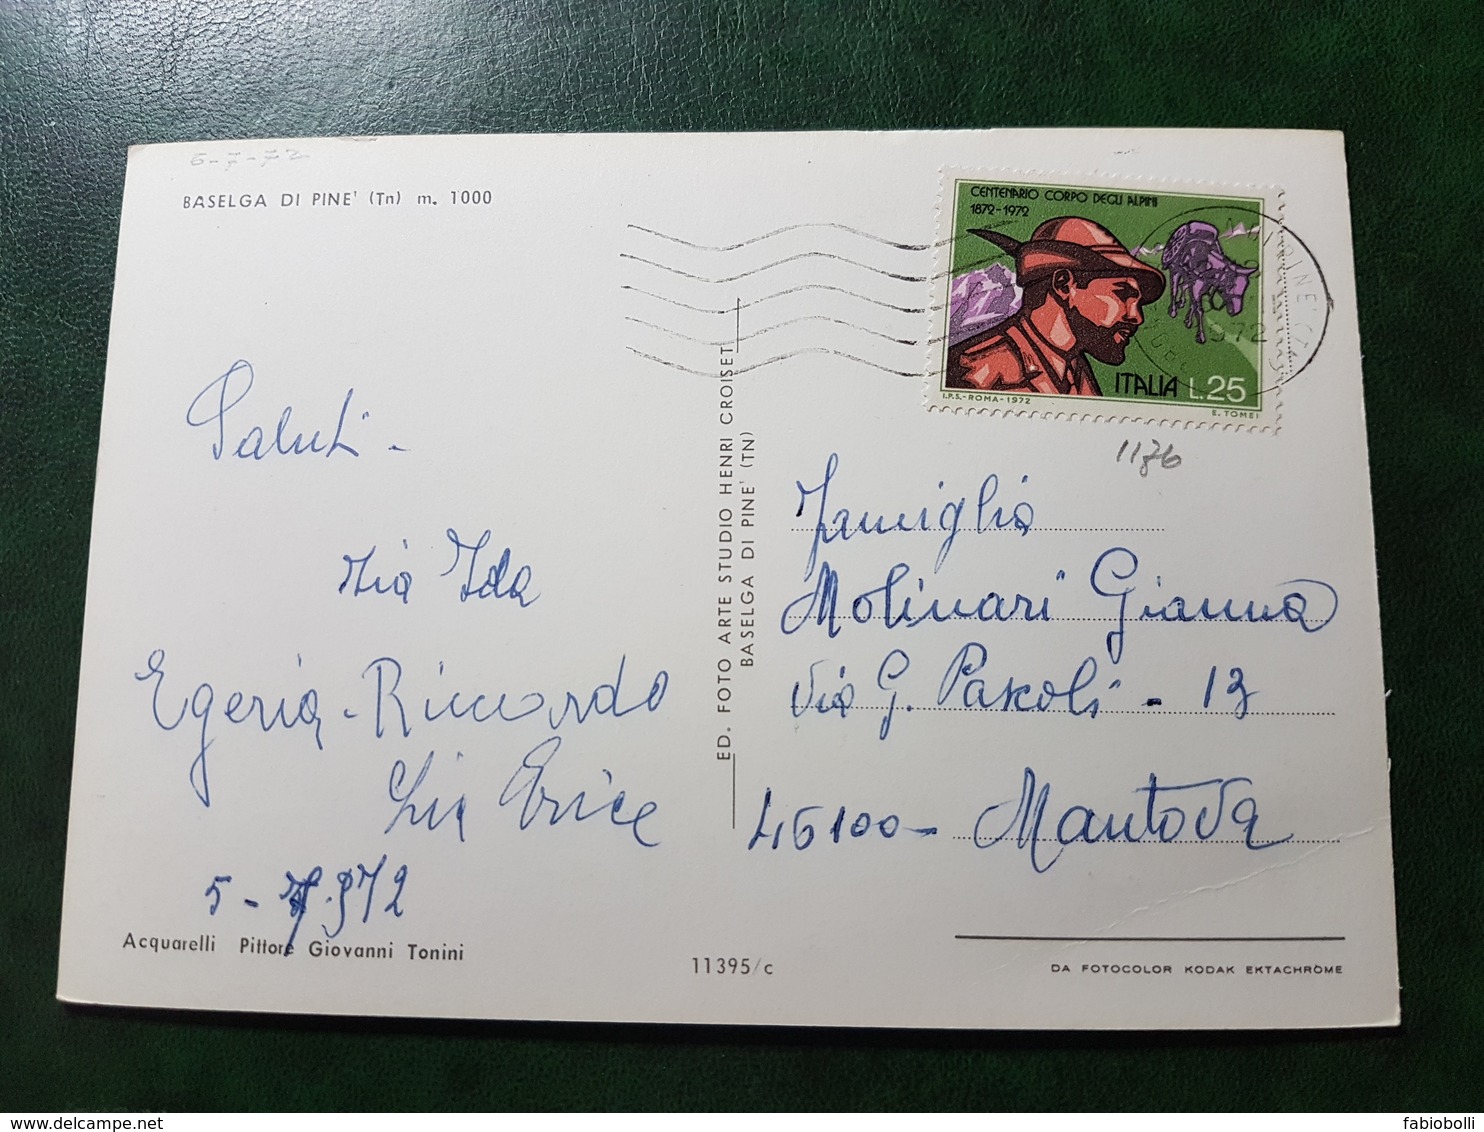 6-7-72
BASELGA DI PINE' (Tn) m. 1000
CENTENARIO CORPO DEGLI ALPINI
1872-1972
ITALIA L.25
I.P.S.-ROMA-1972
E. TOMEI
1972
1176
Saluti -
zia Ida
Egeria - Riccardo
Lia Erice
5 - 7. 972
ED. FOTO ARTE STUDIO HENRI CROISET
BASELGA DI PINE' (TN)
Famiglia
Molinari Gianna
Via G. Pascoli - 13
46100 - Mantova
Acquarelli Pittore Giovanni Tonini
11395/c
DA FOTOCOLOR KODAK EKTACHROME
fabiobolli